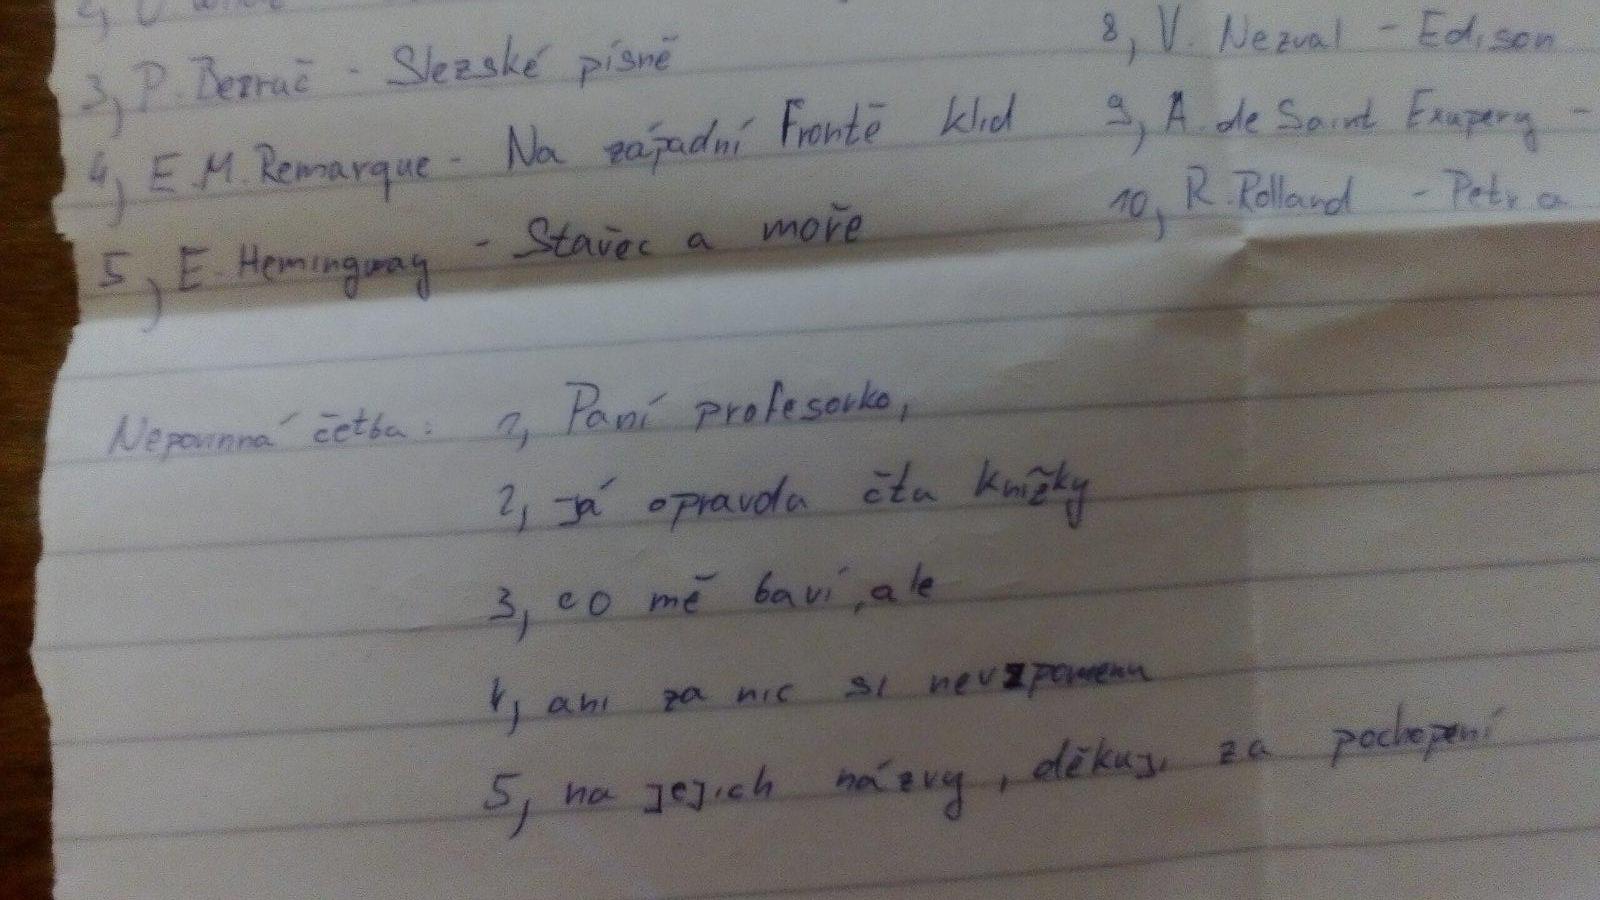 3, P. Bezruč - Slezské písně
4, E.M. Remarque - Na západní Frontě klid
5, E. Hemingway - Stařec a moře
8, V. Nezval - Edison
9, A. de Saint Exupery -
10, R. Rolland - Petr a
Nepovinná četba: 1, Paní profesorko,
2, já opravdu čtu knížky
3, co mě baví, ale
4, ani za nic si nevzpomenu
5, na jejich názvy, děkuji za pochopení